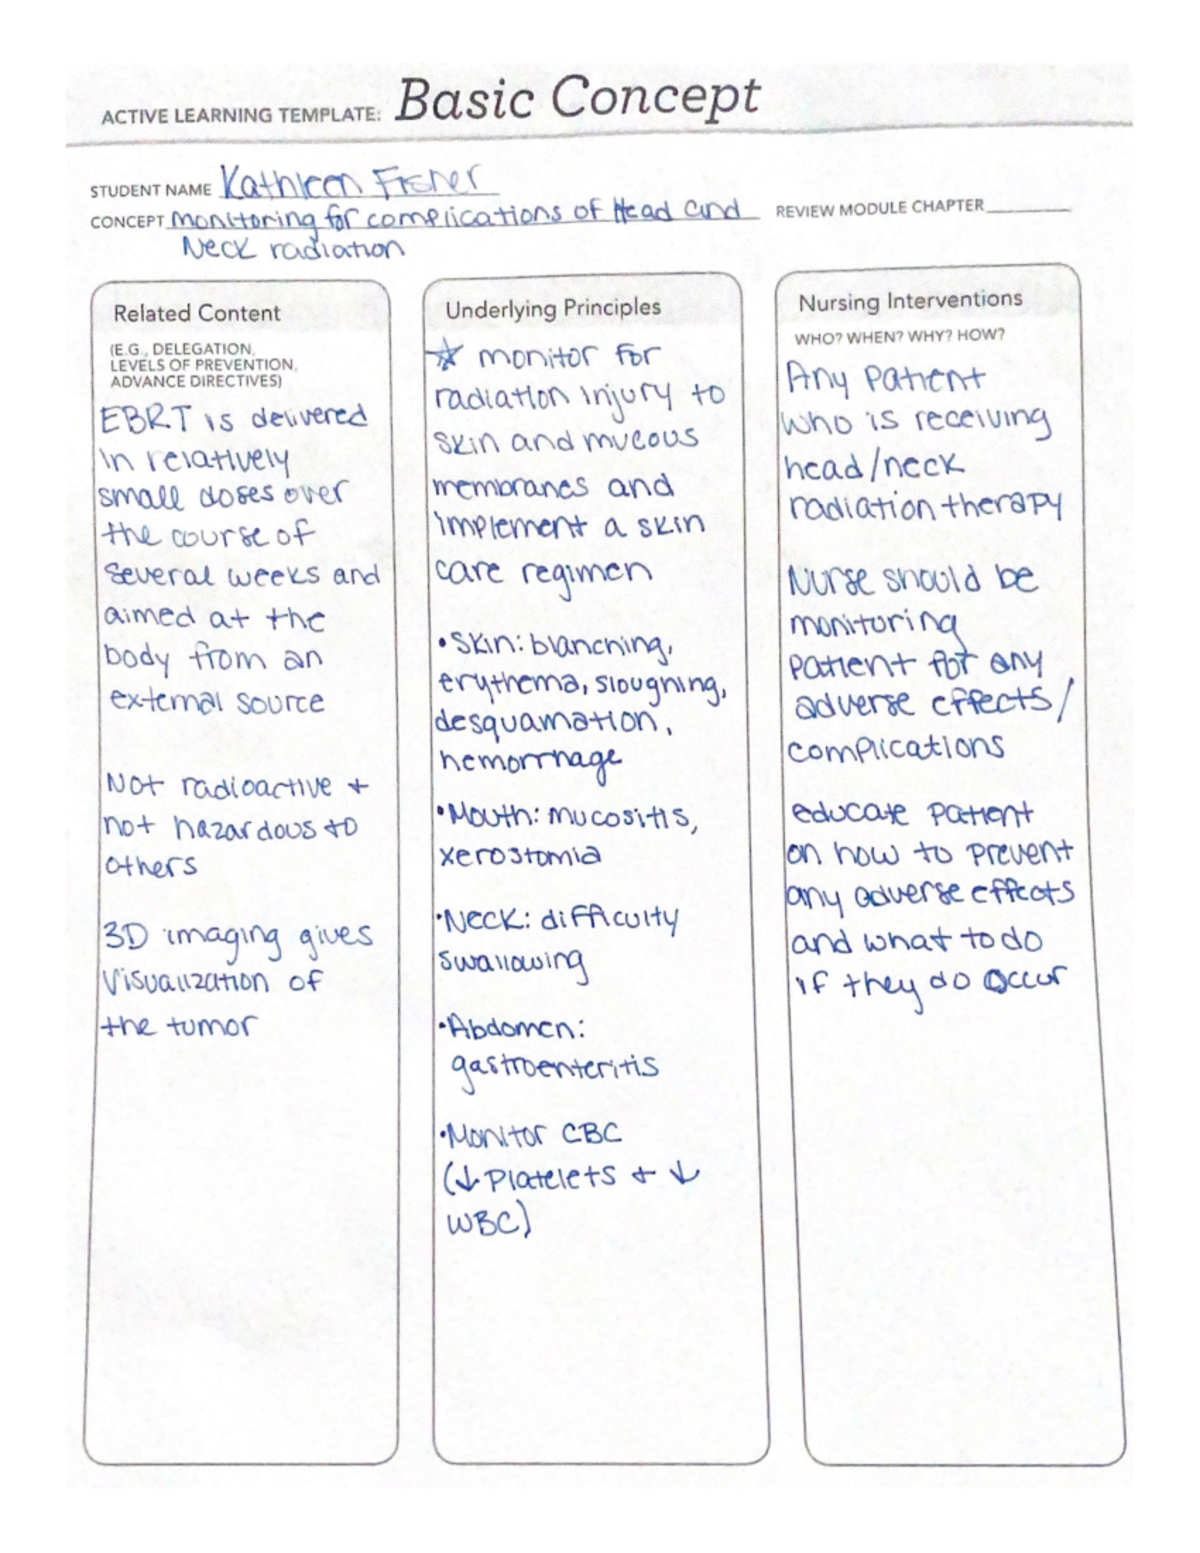 ACTIVE LEARNING TEMPLATE: Basic Concept
STUDENT NAME Kathleen Fisher
CONCEPT monitoring for complications of Head and REVIEW MODULE CHAPTER
Neck radiation
Related Content
(E.G., DELEGATION,
LEVELS OF PREVENTION,
ADVANCE DIRECTIVES)
EBRT is delivered
in relatively
small doses over
the course of
several weeks and
aimed at the
body from an
external source
Not radioactive +
not hazardous to
others
3D imaging gives
Visualization of
the tumor
Underlying Principles
☆ monitor for
radiation injury to
skin and mucous
membranes and
implement a skin
care regimen
• Skin: blanching,
erythema, sloughing,
desquamation,
hemorrhage
• Mouth: mucositis,
xerostomia
• Neck: difficulty
swallowing
• Abdomen:
gastroenteritis
• Monitor CBC
(↓ Platelets + ↓
WBC)
Nursing Interventions
WHO? WHEN? WHY? HOW?
Any patient
who is receiving
head/neck
radiation therapy
Nurse should be
monitoring
patient for any
adverse effects/
complications
educate patient
on how to prevent
any adverse effects
and what to do
if they do occur